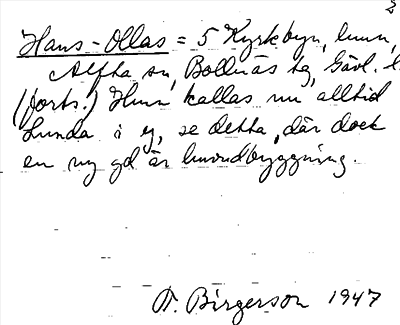 2
Hans-Ollas = 5 Kyrkbyn, hmn,
Alfta sn, Bollnäs tg, Gävl. l.
(forts.) Hmn kallas nu alltid
Lunda i ej, se detta, där dock
en ny gd är huvudbyggning.
F. Birgerson 1947